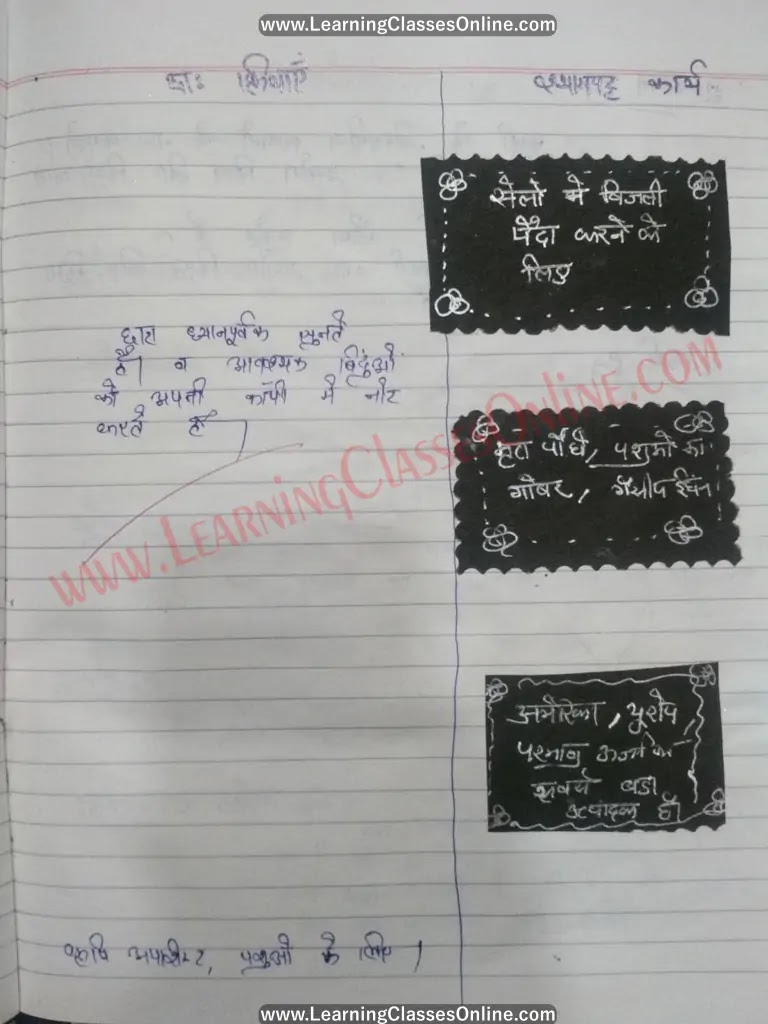 www.LearningClassesOnline.com
छा: क्रियाएँ
श्यामपट्ट कार्य
सेलो मे बिजली
पैदा करने के
लिए
छात्र ध्यानपूर्वक सुनते
है। व आवश्यक बिंदुओ
को अपनी कॉपी मे नोट
करते है।
मृत पौधे, पशुओ का
गोबर,
www.LearningClassesOnline.com
अमेरिका, यूरोप,
परमाणु ऊर्जा के
सबसे बडा
उत्पादक है।
कृषि अपशिष्ट, पशुओ के लिए।
www.LearningClassesOnline.com